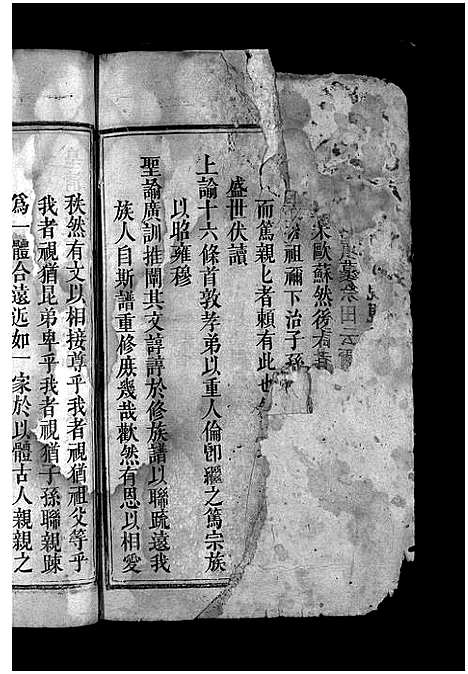 宋歐蘇然後
祖禰下治子孫
而篤親〻者賴有此也
盛世伏讀
上諭十六條首敦孝弟以重人倫卽繼之篤宗族
以昭雍穆
聖諭廣訓推闡其文諄諄於修族譜以聯疏遠我
族人自斯譜重修庶幾哉歡然有恩以相愛
秩然有文以相接尊乎我者視猶祖父等乎
我者視猶昆弟卑乎我者視猶子孫聯親疎
爲一體合遠近如一家於以體古人親親之